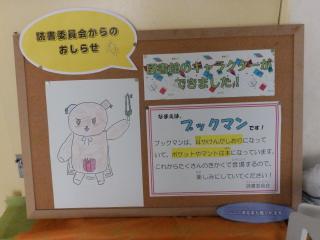 読書委員会からの
おしらせ
図書館のキャラクターが
できました!!
なまえは、
ブックマンです!
ブックマンは、耳やけんがしおりになって
いて、ポケットやマントは本になっています。
これからたくさんのきかくで登場するので、
楽しみにしていてください!
読書委員会